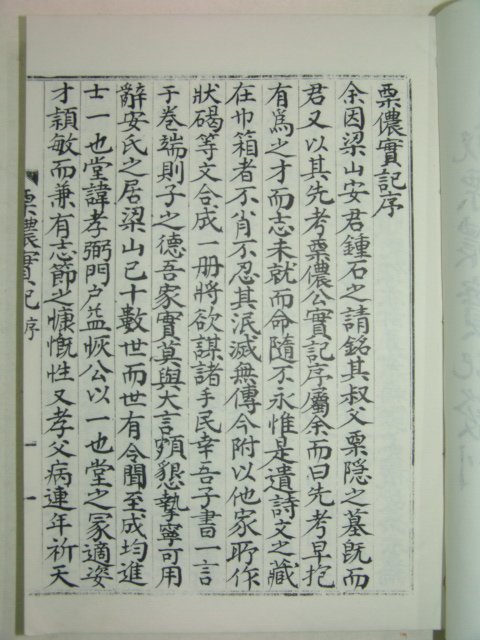 栗儂實記序
余因梁山安君鍾石之請銘其叔父栗隱之墓旣而
君又以其先考栗儂公實記序屬余而曰先考早抱
有爲之才而志未就而命隨不永惟是遺詩文之藏
在巾箱者不肖不忍其泯滅無傳今附以他家所作
狀碣等文合成一册將欲謀諸手民幸吾子書一言
于卷端則子之德吾家實莫與大言頗懇摯寧可用
辭安氏之居梁山已十數世而世有令聞至成均進
士一也堂諱孝弼門户益恢公以一也堂之冢適姿
才穎敏而兼有志節之慷慨性又孝父病連年祈天
栗儂實記 序 一